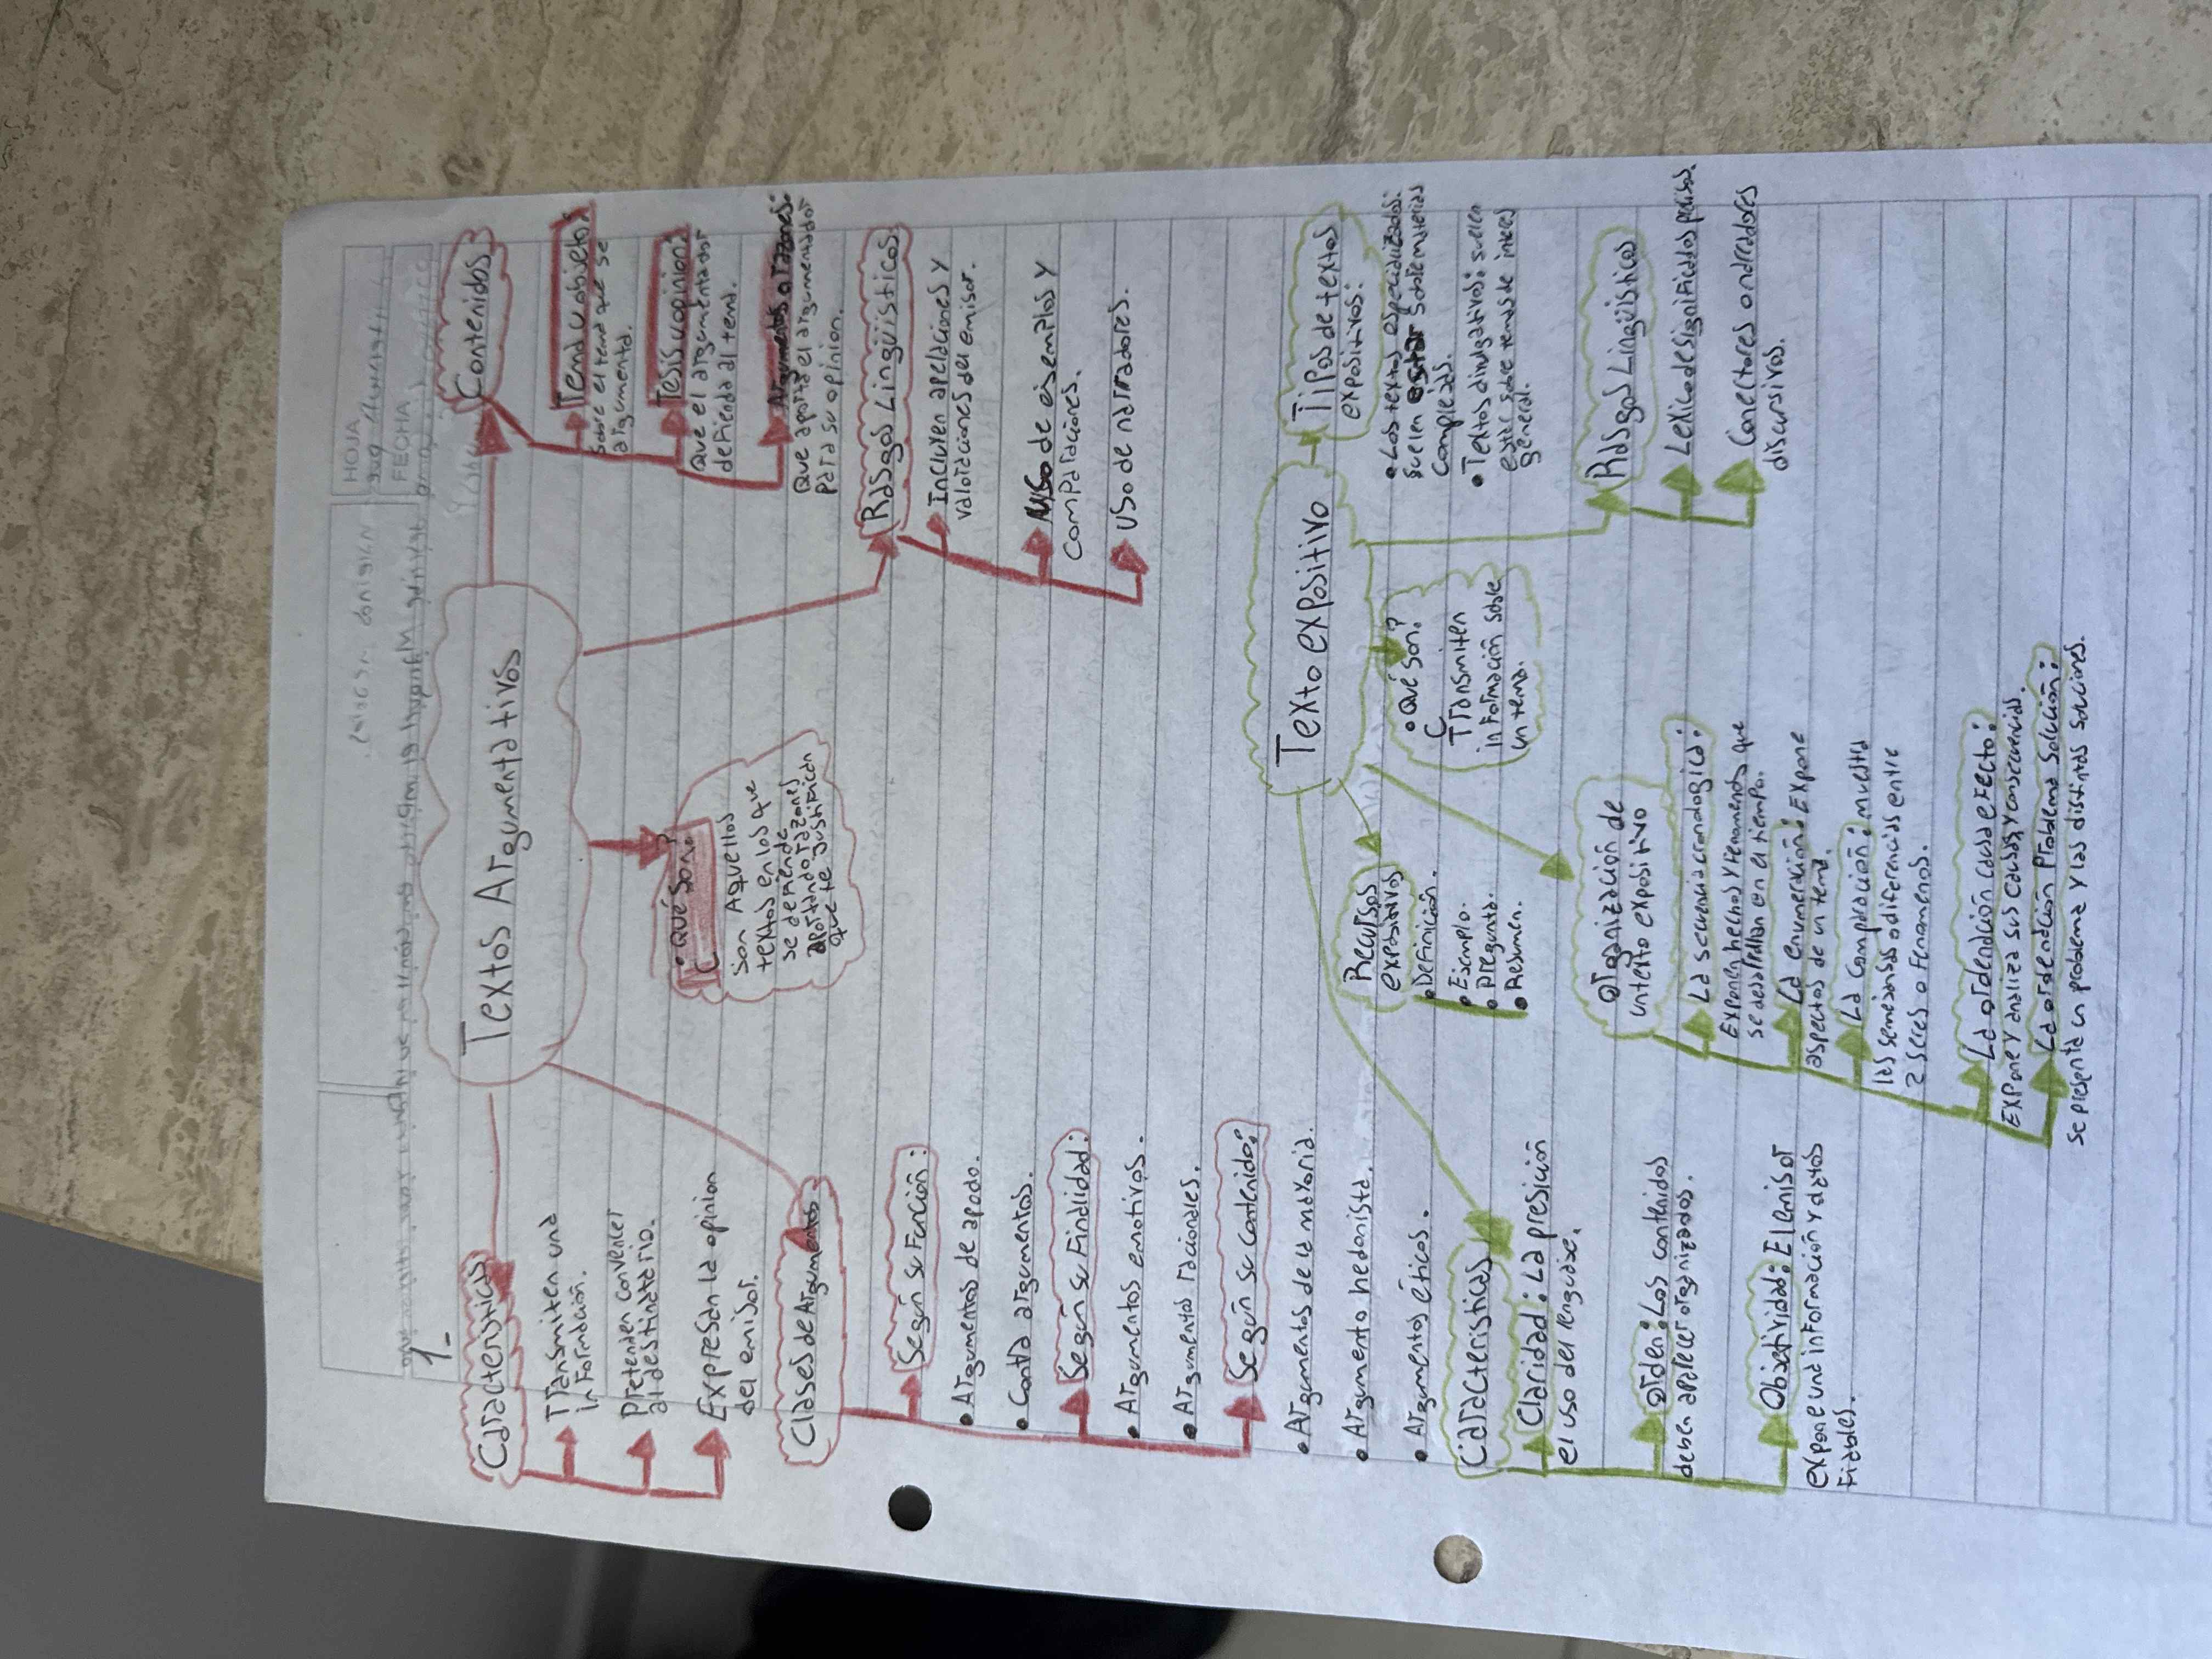 HOJA
FECHA
1-
Textos Argumentativos
Características
Transmiten una
información.
Pretenden convencer
al destinatario.
Expresan la opinion
del emisor.
Clases de Argumentos
Según su Función:
• Argumentos de apodo.
• Contra argumentos.
Según su Finalidad:
• Argumentos emotivos.
• Argumentos racionales.
Según su contenido:
• Argumentos de la mayoria.
• Argumento hedonista.
• Argumentos éticos.
¿Qué Son?
Son Aquellos
textos en los que
se defiende
aportando razones
que te justifican
Contenidos
Tema u objeto:
sobre el tema que se
argumenta.
Tesis u opinion:
Que el argumentador
defienda al tema.
Argumentos o razones:
Que aporta el argumentador
para su opinion.
Rasgos Lingüísticos
Incluyen apelaciones y
valoraciones del emisor.
Uso de ejemplos y
comparaciones.
Uso de narradores.
Texto expositivo
Características
Claridad: La presición
el uso del lenguaje.
Orden: Los contenidos
deben aparecer organizados.
Objetividad: El emisor
expone una información y datos
Fiables.
Recursos
expositivos
• Definición.
• Ejemplo.
• Pregunta.
• Resumen.
Organización de
un texto expositivo
La secuencia cronologica:
Exponen hechos y fenomenos que
se desarrollan en el tiempo.
La enumeración: Expone
aspectos de un tema.
La Comparación: muestra
las semejanzas o diferencias entre
2 seres o Fenomenos.
La ordención causa efecto:
Expone y analiza sus causas y consecuencias.
La ordención Problema Solución:
Se presenta un problema y las distintas soluciones.
¿Qué Son?
Transmiten
información sobre
un tema.
Tipos de textos
expositivos:
• Los textos especializados:
suelen estar sobre materias
Complejas.
• Textos divulgativos: suelen
estar sobre temas de interes
general.
Rasgos Lingüístico
Lexico de significados
Conectores o
discursivos.